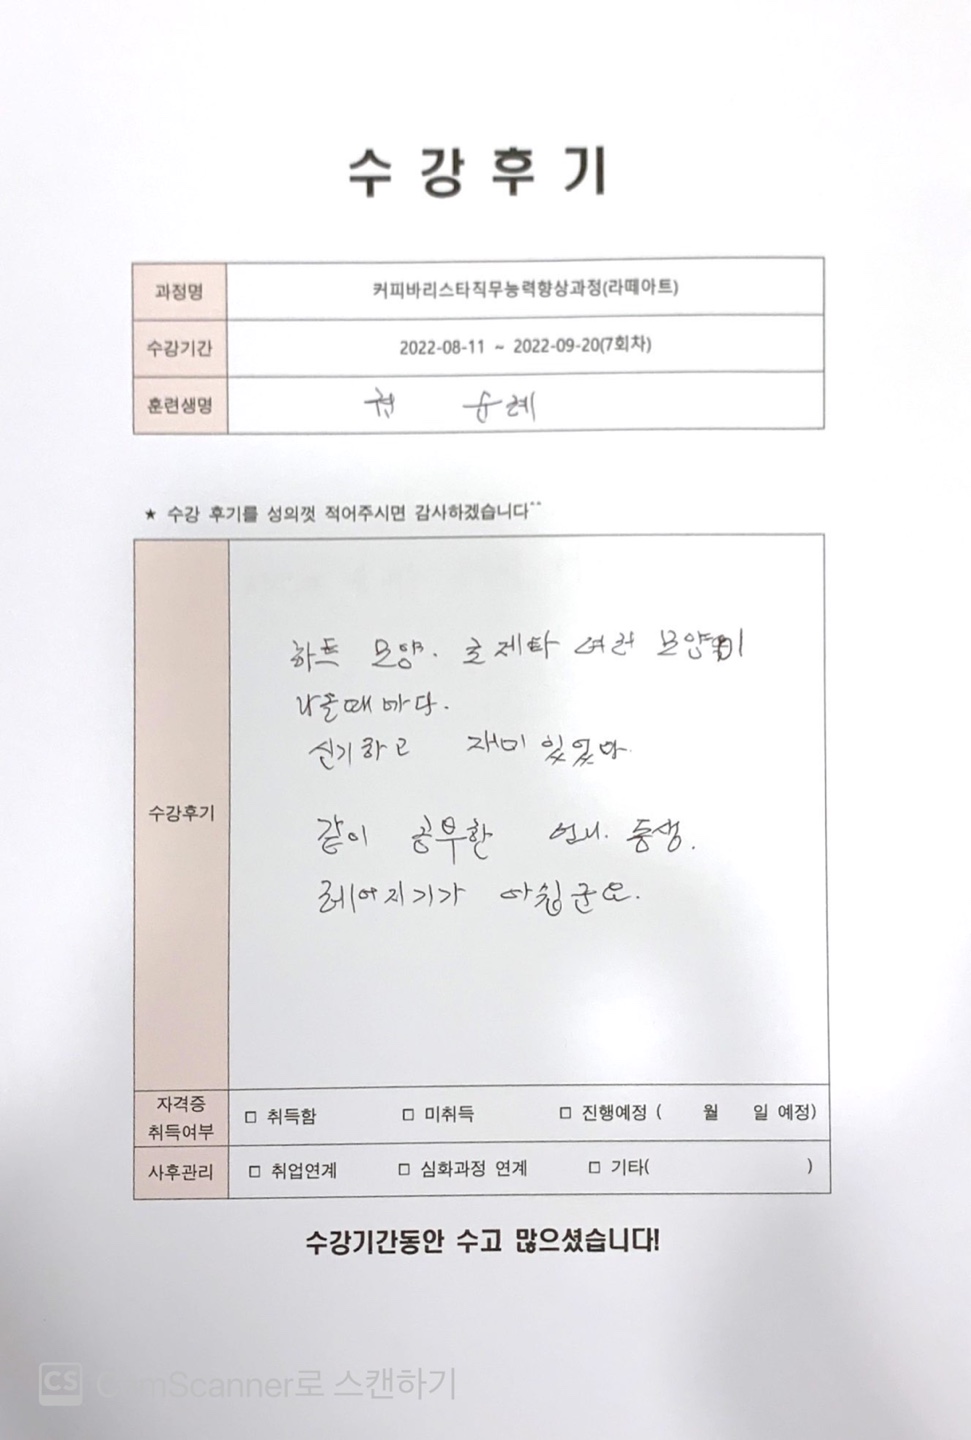 수 강 후 기
과정명 커피바리스타직무능력향상과정(라떼아트)
수강기간 2022-08-11 ~ 2022-09-20(7회차)
훈련생명 순례
★ 수강 후기를 성의껏 적어주시면 감사하겠습니다^^
수강후기
하트 모양. 로제타 여러 모양이
나올때 마다.
신기하고 재미 있었다.
같이 공부한 언니. 동생.
헤어지기가 아쉽군요.
자격증
취득여부 □ 취득함 □ 미취득 □ 진행예정 ( 월 일 예정)
사후관리 □ 취업연계 □ 심화과정 연계 □ 기타( )
수강기간동안 수고 많으셨습니다!
CS CamScanner로 스캔하기